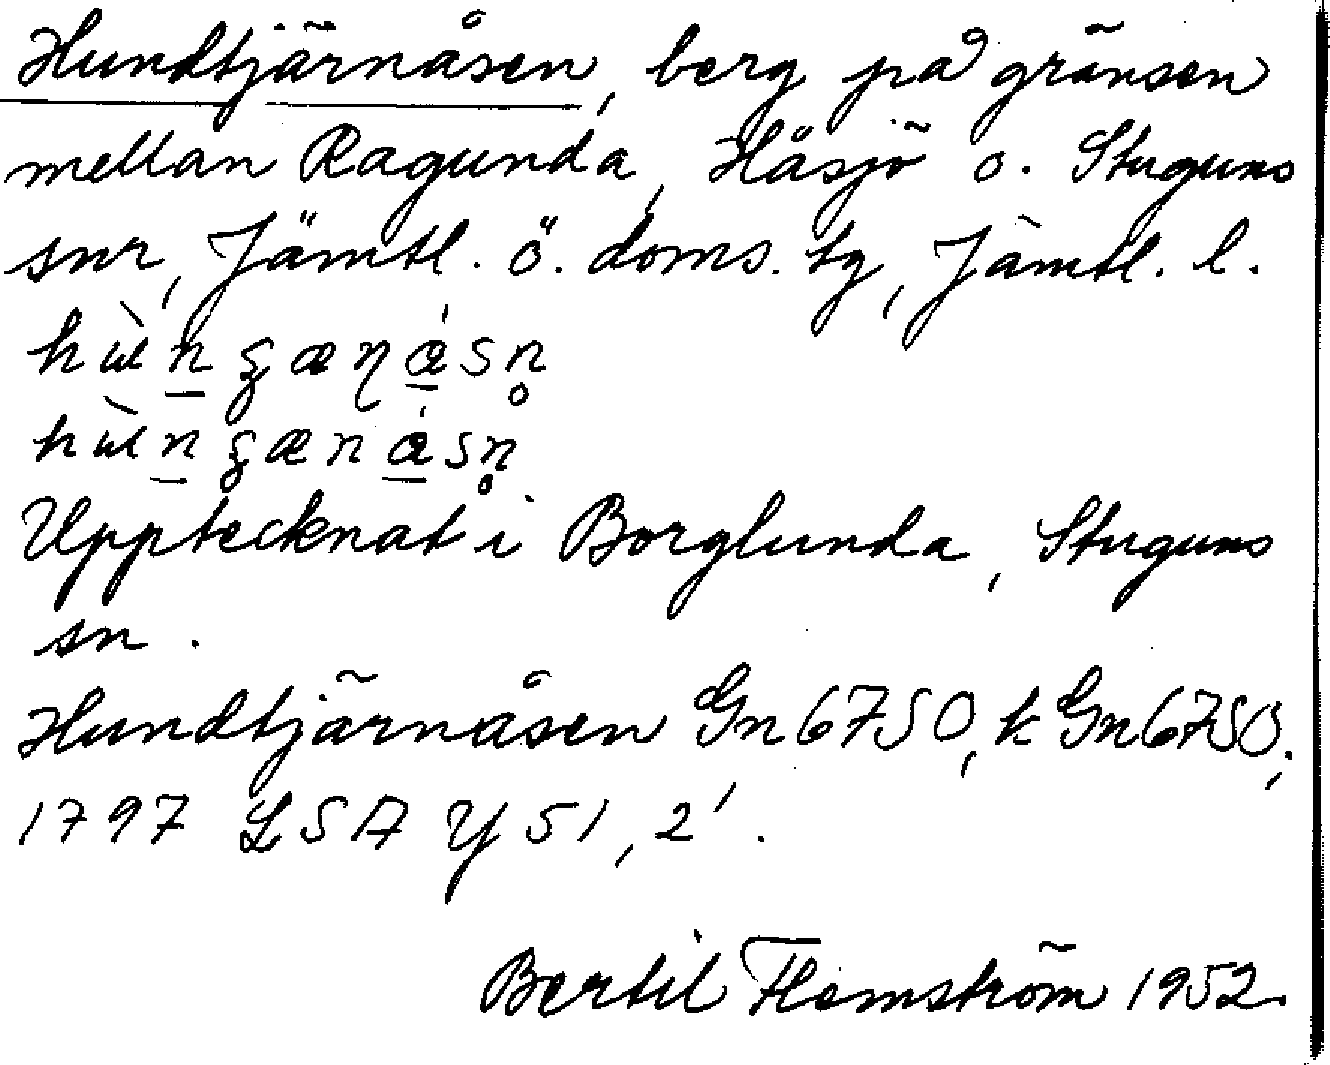 Hundtjärnåsen, berg på gränsen
mellan Ragunda, Håsjö o. Stuguns
snr, Jämtl. ö. doms. tg, Jämtl. l.
Upptecknat i Borglunda, Stuguns
sn.
Hundtjärnåsen Gn 6750, k Gn 6750;
1797 LSA Y51, 2'.
Bertil Flemström 1952.